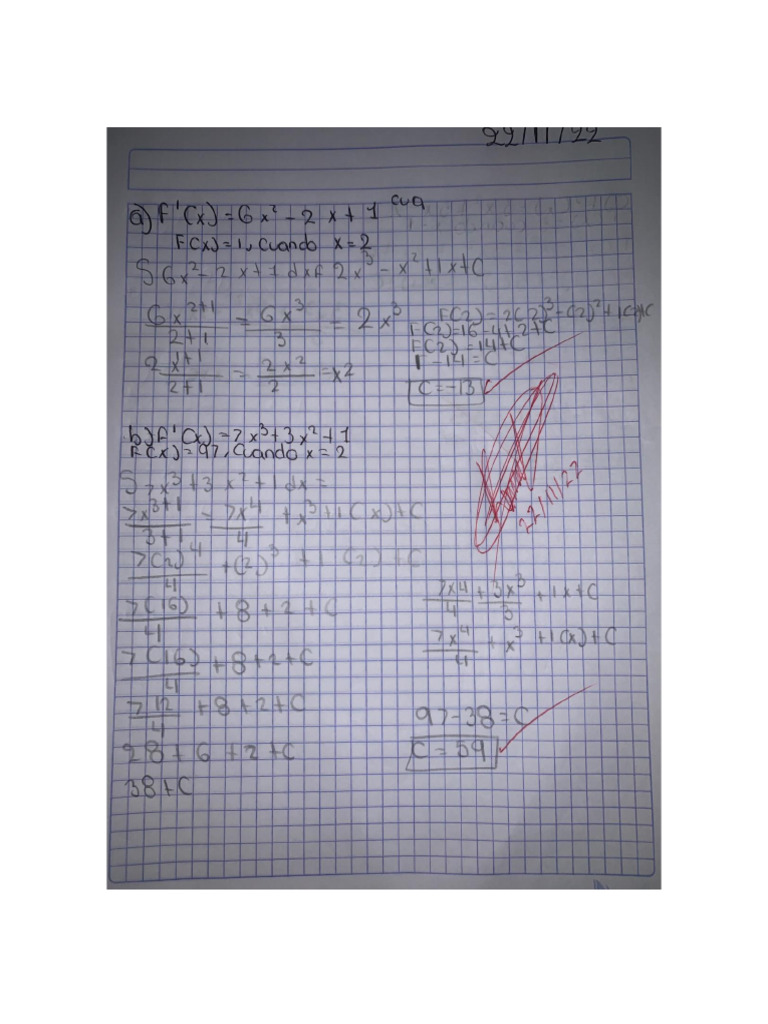 22/11/22
a) F'(x) = 6x² - 2x + 1 cua
F(x) = 1, cuando x = 2
S 6x² - 2x + 1 dx F 2x³ - x² + 1x + C
6x²⁺¹/2+1 = 6x³/3 = 2x³
2x¹⁺¹/2+1 = 2x²/2 = x2
F(2) = 2(2)³ - (2)² + 1(2)+C
F(2) = 16 - 4 + 2 + C
F(2) = 14 + C
1 - 14 = C
C = -13
b) F'(x) = 7x³ + 3x² + 1
F(x) = 97, Cuando x = 2
S 7x³ + 3x² + 1 dx =
7x³⁺¹/3+1 = 7x⁴/4 + x³ + 1(x) + C
7(2)⁴/4 + (2)³ + 1(2) + C
7(16)/4 + 8 + 2 + C
7(16)/4 + 8 + 2 + C
28 + 6 + 2 + C
38 + C
22/11/22
7x4/4 + 3x³/3 + 1x + C
7x⁴/4 + x³ + 1(x) + C
97 - 38 = C
C = 59